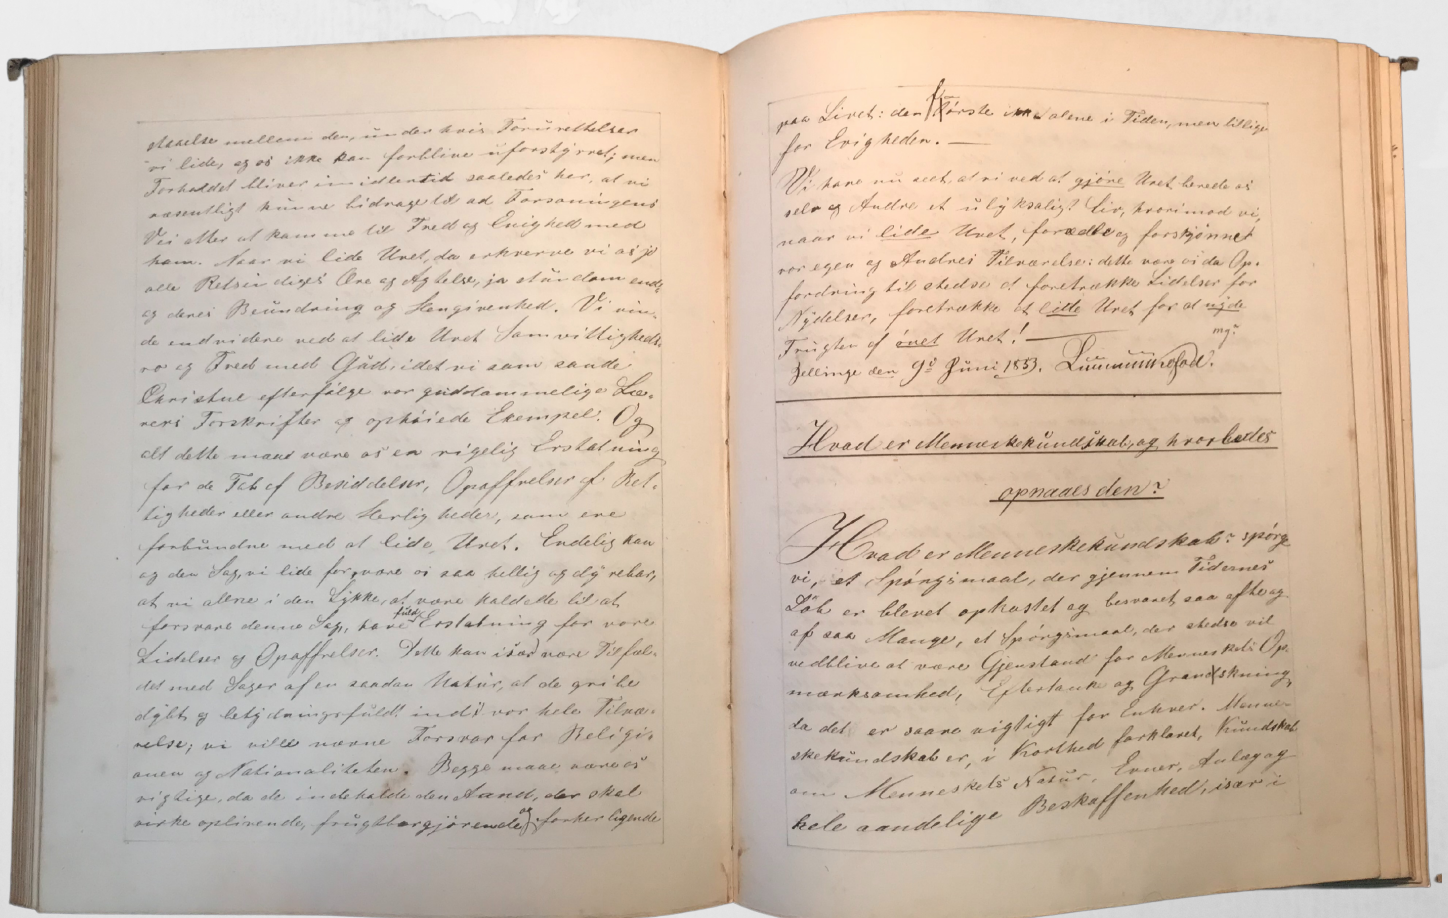 mellem den, under hvis Forurettelser
vi lide, og os ikke kan forblive uforstyrret; men
Forholdet bliver imidlertid saaledes her, at vi
væsentligt kunne bidrage til ad Forsoningens
Vei atter at komme til Fred og Enighed med
ham. Naar vi lide Uret, da erhverve vi os jo
alle Retsindiges Ære og Agtelse, ja stundom end-
og deres Beundring og Hengivenhed. Vi vin-
de endvidere ved at lide Uret Samvittigheds-
ro og Fred med Gud, idet vi som sande
Christne efterfølge vor guddommelige Læ-
rers Forskrifter og ophøiede Exempel. Og
alt dette maae være os en rigelig Erstatning
for de Tab af Besiddelser, Opoffrelser af Ret-
tigheder eller andre Herligheder, som ere
forbundne med at lide Uret. Endelig kan
og den Sag, vi lide for, være os saa hellig og dyrebar,
at vi alene i den Lykke, at være kaldede til at
forsvare denne Sag, have fuld Erstatning for vore
Lidelser og Opoffrelser. Dette kan især være Tilfæl-
det med Sager af en saadan Natur, at de gribe
dybt og betydningsfuldt ind i vor hele Tilvæ-
relse; vi ville nævne Forsvar for Religi-
onen og Nationaliteten. Begge maae være os
vigtige, da de indeholde den Aand, der skal
virke oplivende, frugtbargjørende og forherligende
paa Livet: den første ikke alene i Tiden, men tillige
for Evigheden. —
Vi have nu seet, at vi ved at gjøre Uret berede os
selv og Andre et ulyksaligt Liv, hvorimod vi,
naar vi lide Uret, forædle og forskjønne
vor egen og Andres Tilværelse: dette være os da Op-
fordring til stedse at foretrække Lidelser for
Nydelser, foretrække at lide Uret for at nyde
Frugter af øvet Uret! —
Jellinge den 9de Juni 1853.
Hvad er Menneskekundskab, og hvorledes
opnaaes den?
Hvad er Menneskekundskab? spørge
vi, et Spørgsmaal, der gjennem Tidernes
Løb er blevet opkastet og besvaret saa ofte og
af saa Mange, et Spørgsmaal, der stedse vil
vedblive at være Gjenstand for Menneskets Op-
mærksomhed, Eftertanke og Granskning,
da det er saare vigtigt for Enhver. Menne-
skekundskab er, i Korthed forklaret, Kundskab
om Menneskets Natur, Evner, Anlæg og
hele aandelige Beskaffenhed, især i